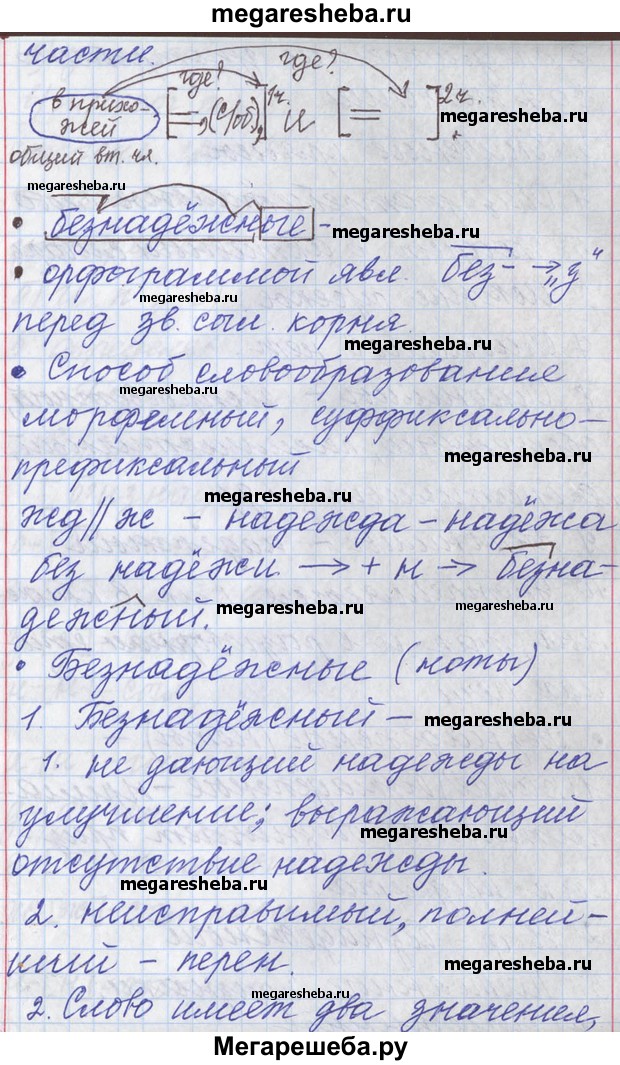 megaresheba.ru
части.
где? где?
в прихо- [=, (С/об),]1ч. и [= ]2ч.
жей
megaresheba.ru
общий вт. чл.
megaresheba.ru
• безнадёжные -
megaresheba.ru
• орфограммой явл. без- → „з“
megaresheba.ru
перед зв. согл. корня.
megaresheba.ru
• Способ словообразования
megaresheba.ru
морфемный, суффиксально-
префиксальный
megaresheba.ru
megaresheba.ru
жд//ж - надежда - надёжа
без надёжи → + н → безна-
дежный.
megaresheba.ru megaresheba.ru
• Безнадёжные (ноты)
1. Безнадёжный -
megaresheba.ru
1. не дающий надежды на
улучшение; выражающий
megaresheba.ru
отсутствие надежды.
megaresheba.ru
2. неисправимый, полней-
ший - перен.
megaresheba.ru
megaresheba.ru
2. Слово имеет два значения,
Мегарешеба.ру